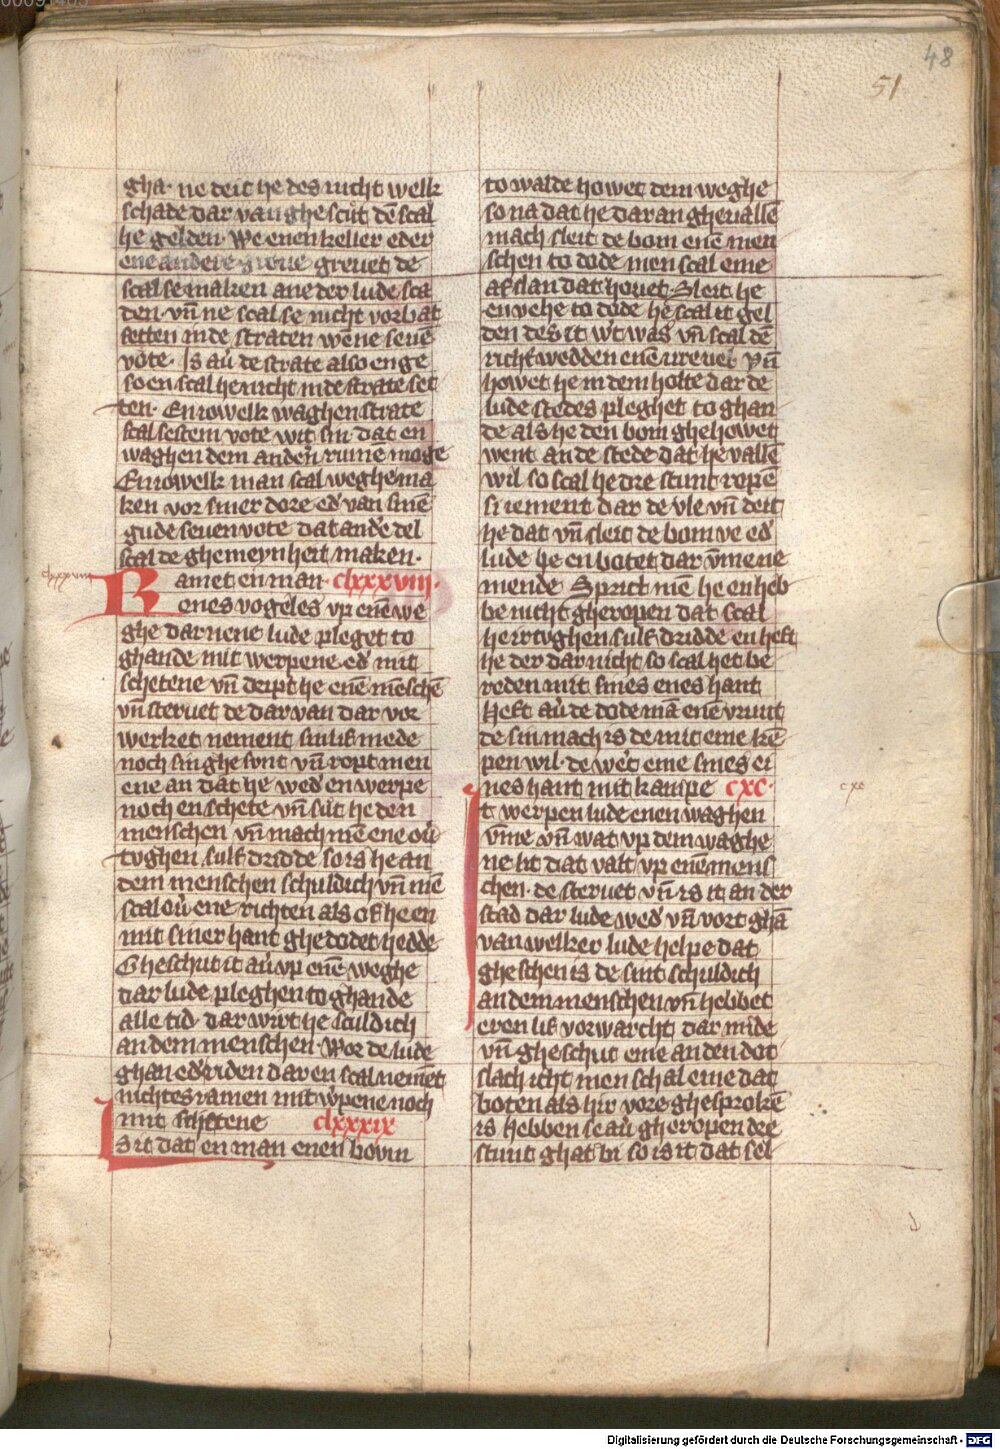 48
51
gha· ne deit he des nicht welk
schade dar van ghescut dē scal
he gelden· We enen keller eder
ene andere groue greuet de
scal se maken ane der lude sca
den· vn̄ ne scal se nicht vorbat
setten in de straten wēne seuē
vote· Is au̓ de strate also enge
so en scal he nicht in de strate set
ten· En iowelk waghen strate
scal sestein vote wit sin dat en
waghen dem anderē rumē moge
En iowelk man scal weghe ma
ken vor siner dore ed̓ van sinē
gude seuen vote dat and̓e del
scal de ghemeynheit maken·
clxxxviii
Ramet en man· clxxxviii·
enes vogeles vp enē we
ghe dar nene lude pleget to
ghande mit werpene ed̓ mit
schetene vn̄ derpt he enē mēschē
vn̄ steruet de dar van dar vor
werket nement sin lif mede
noch sin ghesont vn̄ ropt men
ene an dat he wed̓ en werpe
noch en schete vn̄ sut̓ he den
menschen vn̄ mach mē ene ou̓
tvghen sulf dridde so is he an
dem menschen schuldich vn̄ mē
scal ou̓ ene richten als of he en
mit siner hant ghedodet hedde
Gheschut it au̓ vp enē weghe
dar lude pleghen to ghande
alle tid· dar wirt he sculdich
an dem menschen· Wor de lude
ghan ed̓ riden dar en scal nemēt
nichtes ramen mit w̓pene noch
mit schetene clxxxix
Is it dat en man enen bovm
to walde howet dem weghe
so na dat he dar an gheuallē
mach sleit de bom enē men
schen to dode men scal eme
afslan dat houet· Sleit he
en vehe to dode he scal it gel
den des it w̓t was vn̄ scal dē
richt̓ wedden enē vreuel· Vn̄
howet he in dem holte dar de
lude stedes pleghet to ghan
de als he den bom ghehowet
went an de stede dat he vallē
wil so scal he dre stunt ropē
si iement dar de vle vn̄ deit
he dat vn̄ sleit de bom ve ed̓
lude he en botet dar v̄me ne
mende Sprict mē he en heb
be nicht gheropen dat scal
he irtvghen sulf dridde en heft
he der dar nicht so scal het be
reden mit sines enes hant
Heft au̓ de dode mā enē vrunt
de sin mach is de mit eme kē
pen wil· de wer̓t eme sines ei
nes hant mit kampe cxc·
cxc
It werpen lude enen waghen
v̄me vn̄ wat vp dem waghe
ne lit dat valt vp enē mens
chen· de steruet vn̄ is it an der
stad dar lude wed̓ vn̄ vort ghā
van welker lude helpe dat
gheschen is de sint schuldich
an dem menschen vn̄ hebbet
eren lif vorwarcht dar mide
vn̄ gheschut eme an den dot
slach icht men schal eme dat
boten als hir vore ghesprokē
is hebben se au̓ gheropen dre
stunt ghat bi so is it dat sel
Digitalisierung gefördert durch die Deutsche Forschungsgemeinschaft - DFG